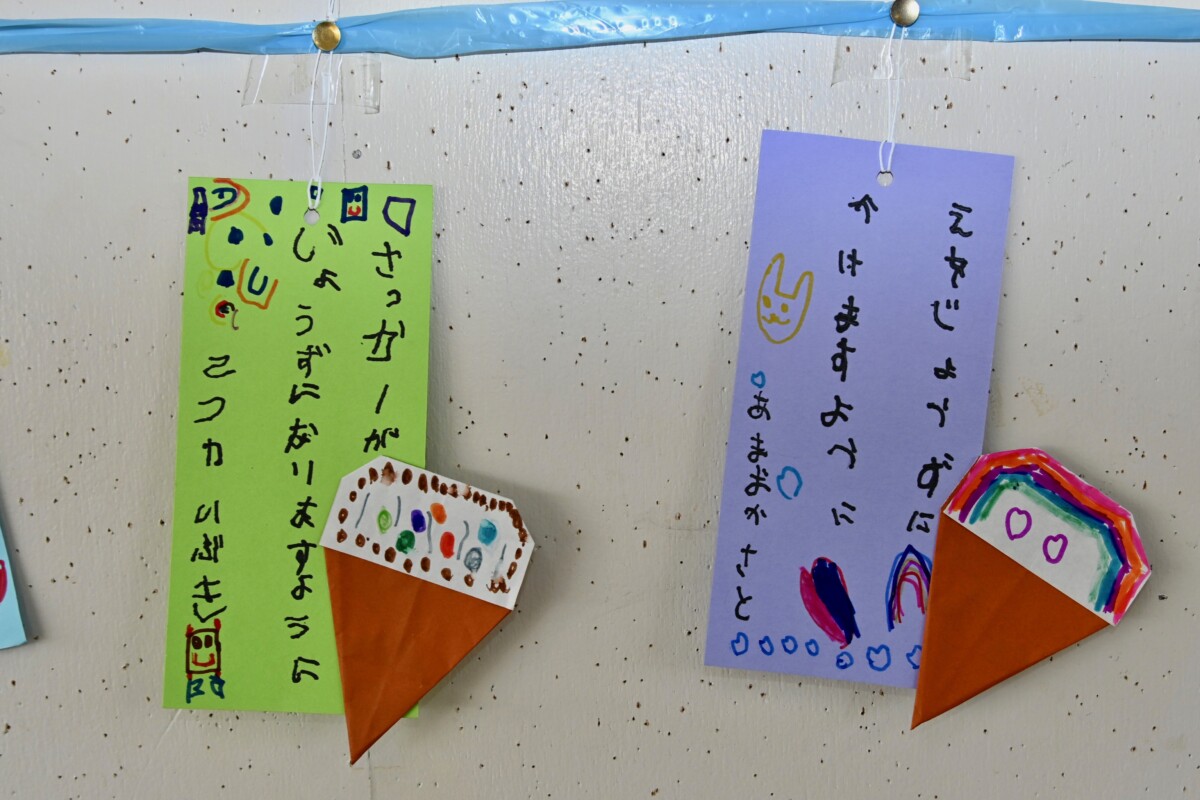 さっかーが
じょうずになりますように
こつか
えがじょうずに
かけますように
さと